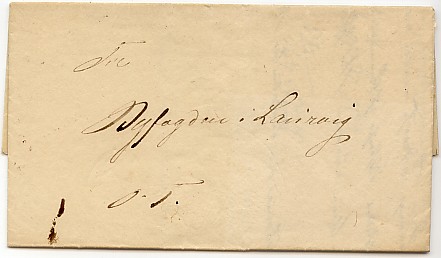 Til
Byfogden i Laurvig
O. T.